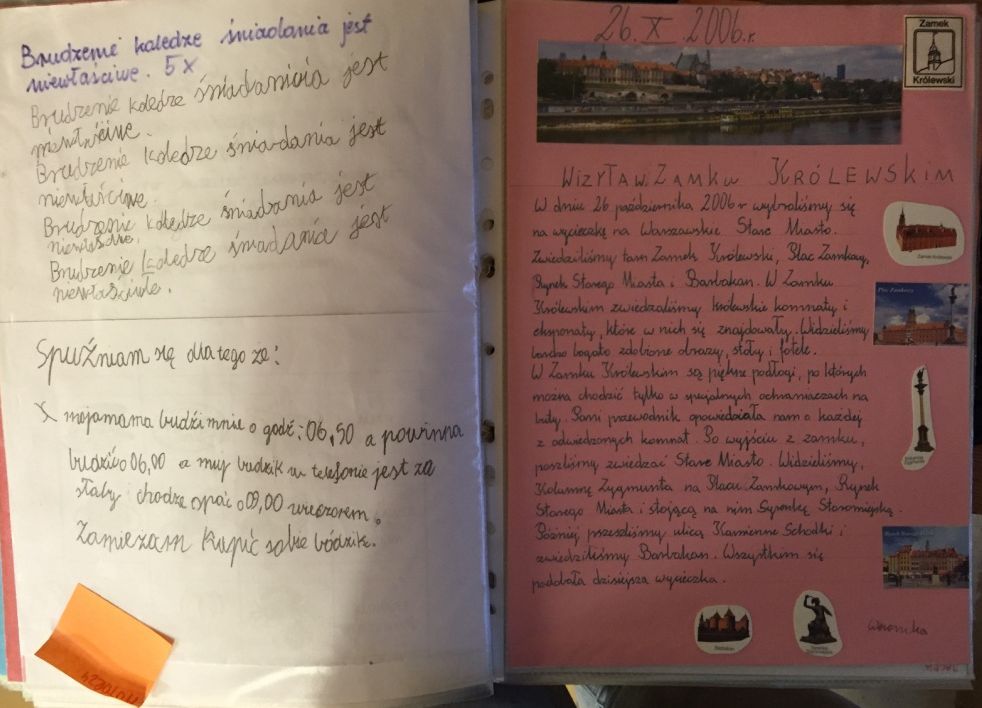 Brudzenie koledze śniadania jest
niewłaściwe. 5 x
Brudzenie koledze śniadania jest
Brudzenie koledze śniadania jest
niewłaściwe.
Brudzenie koledze śniadania jest
Brudzenie koledze śniadania jest
niewłaściwe.
Spuźniam się dla tego że:
X moja mama budzi mnie o godź: 06,50 a powinna
budzić o 06,00 a muj budzik w telefonie jest za
słaby chodzę spać o 09,00 wieczorem.
Zamieżam kupić sobie bódzik.
26. X 2006r.
Zamek
Królewski
WIZYTA W ZAMKU KRÓLEWSKIM
W dniu 26 października 2006r wybraliśmy się
na wycieczkę na Warszawskie Stare Miasto.
Zwiedziliśmy tam Zamek Królewski, Plac Zamkowy,
Rynek Starego Miasta i Barbakan. W Zamku
Królewskim zwiedzaliśmy królewskie komnaty i
eksponaty, które w nich się znajdowały. Widzieliśmy
bardzo bogato zdobione obrazy, stoły i fotele.
W Zamku Królewskim są piękne podłogi, po których
można chodzić tylko w specjalnych ochraniaczach na
buty. Pani przewodnik opowiedziała nam o każdej
z odwiedzonych komnat. Po wyjściu z zamku,
poszliśmy zwiedzać Stare Miasto. Widzieliśmy,
Kolumnę Zygmunta na Placu Zamkowym, Rynek
Starego Miasta i stojącą na nim Syrenkę Staromiejską.
Później przeszliśmy ulicą Kamienne Schodki i
zwiedziliśmy Barbakan. Wszystkim się
podobała dzisiejsza wycieczka.
Zamek Królewski
Plac Zamkowy
Kolumna
Zygmunta
Barbakan
Weronika